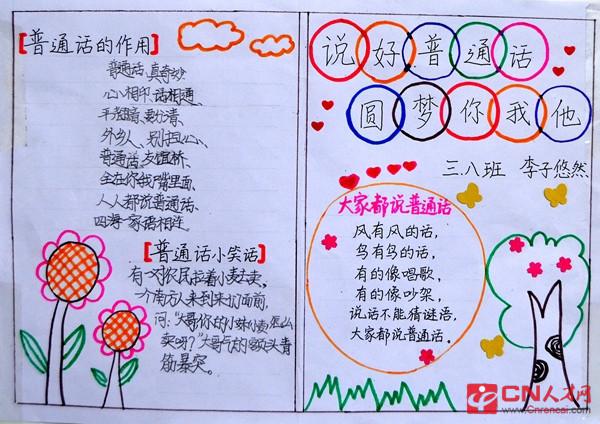 【普通话的作用】
普通话,真奇妙
心心相印、话相通、
外乡人、别担心、
普通话、友谊桥、
全在你我嘴里面、
人人都说普通话、
四海一家语相连
【普通话小笑话】
有一对农民拉着小麦去卖,
一个南方人来到来们面前,
问:"大哥你的小妹
卖呀?"大哥气的额头青
筋暴突。
说好普通话
圆梦你我他
三.八班 李子悠然
大家都说普通话
风有风的话,
鸟有鸟的话,
有的像唱歌,
有的像吵架,
说话不能猜谜语,
大家都说普通话。
CN人才网
www.cnrencai.com